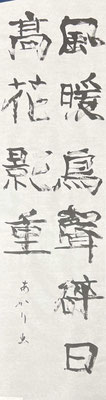 風暖鳥聲碎日
髙花影重
あかり